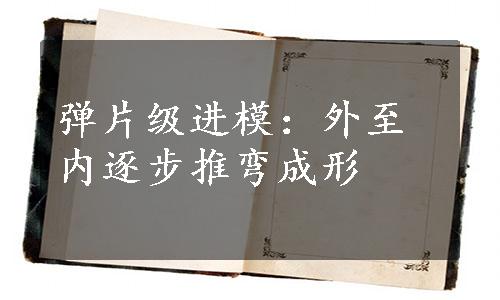 弹片级进模：外至
内逐步推弯成形